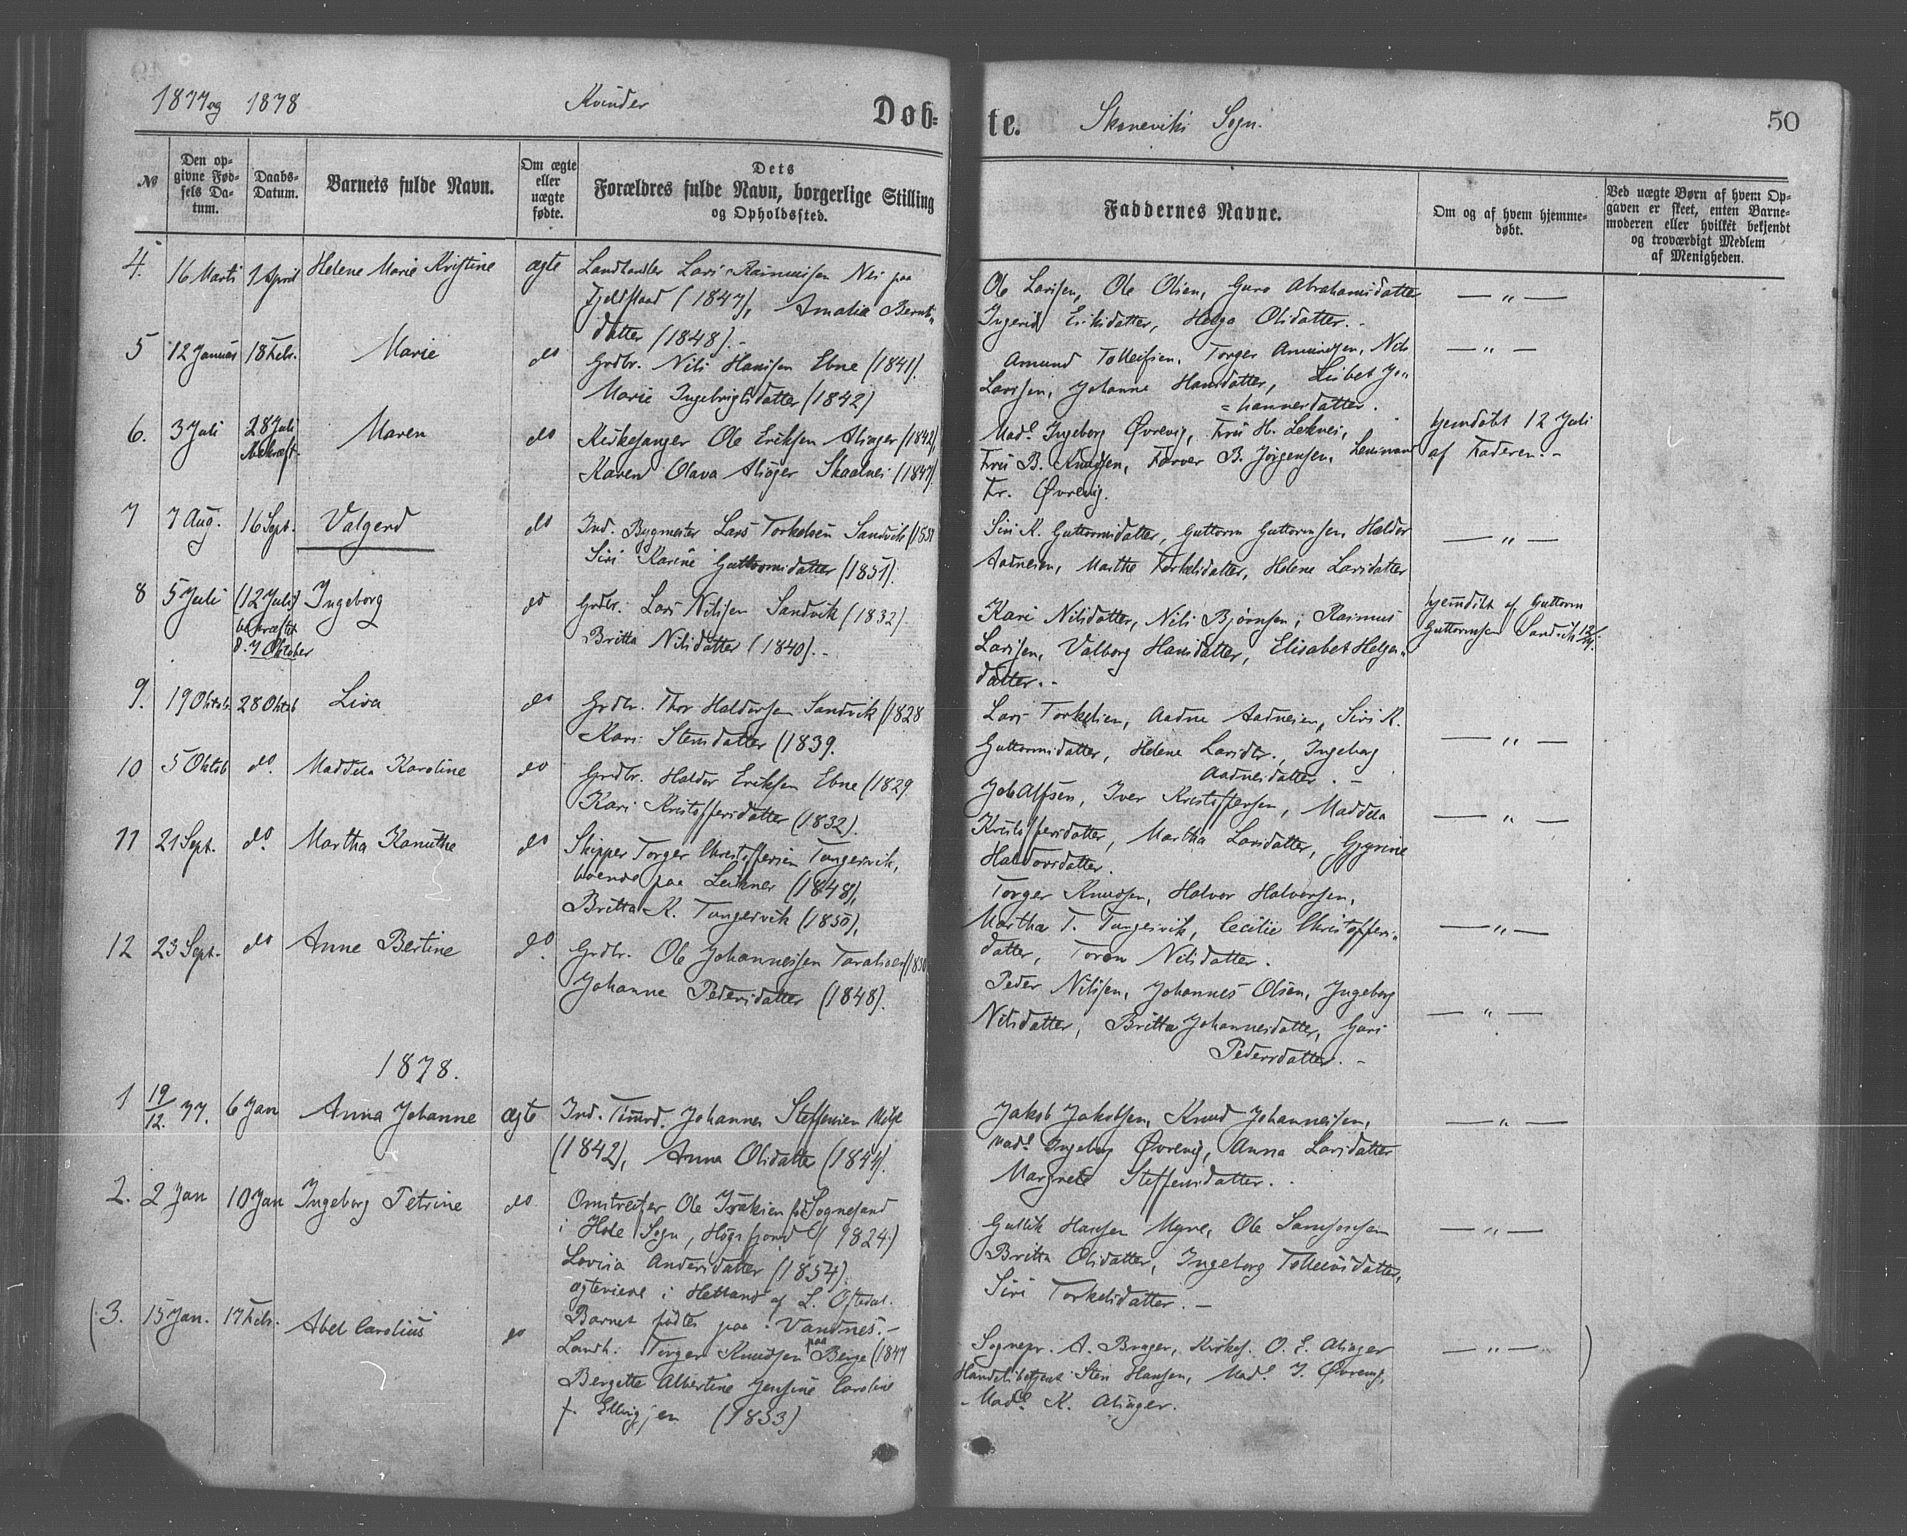 1877 og 1878 Kvinder Døbte. Skoneviks Sogn. 50
№ Den opgivne Fødsels Datum. Daabs-Datum. Barnets fulde Navn. Om ægte eller uægte fødte. Dets Forældres fulde Navn, borgerlige Stilling og Opholdssted. Faddernes Navne. Om og af hvem hjemmedøbt. Ved uægte Børn af hvem Opgaven er skeet, enten Barnemoderen eller hvilket bekjendt og troværdigt Medlem af Menigheden.
4. 16 Marts 1 April Helene Marie Kristine ægte Landhandler Lars Rasmussen Nes paa
Fjeldstad (1847), Amalia Bernts-
datter (1848).-
Ole Larssen, Ole Olsen, Guro Abrahamsdatter
Ingerid Eriksdatter, Helga Olsdatter.-
— " —
5 12 Januar 18 Febr. Marie do Grdbr. Nils Hanssen Ebne (1841).
Marie Ingebrigtsdatter (1842)
Amund Tolleifsen, Torger Amundsen, Nils
Larssen, Johanne Hansdatter, Lisbet Jo-
=hannesdatter.
— " —
6. 3 Juli 28 Juli Bekræft. Maren do Kirkesanger Ole Eriksen Alsager (1842)
Karen Olava Alsager Skaalnes (1847).
Mad. Ingeborg Øvrevig, Fru H. Leknes,
Fru B. Knudsen, Farver B. Jørgensen, Lensmand
Fr. Øvrevig.
hjemdøbt 12 Juli
af Faderen.-
7 7 Aug. 16 Sept. Valgerd do Ind. Bygmester Lars Torkelsen Sandvik (1851
Siri Karine Guttormsdatter (1851).
Siri K. Guttormsdatter, Guttorm Guttormsen, Haldor
Aadnesen, Marthe Torkelsdatter, Helene Larsdatter
— " —
8 5 Juli (12 Juli) bekræftet d. 7 Oktober Ingeborg do Grdbr. Lars Nilssen Sandvik (1832).
Britta Nilsdatter (1840).-
Kari Nilsdatter, Nils Bjørnsen, Rasmus
Larssen, Valborg Hansdatter, Elisabet Helges-
datter.-
hjemdøbt af Guttorm
Guttormsen Sandvik
9. 19 Oktob. 28 Oktob Lisa do Grdbr. Thor Haldorsen Sandvik (1828
Kari Stensdatter (1839.
Lars Torkelsen, Aadne Aadnesen, Siri K.
Guttormsdatter, Helene Larsdtr., Ingeborg
Aadnesdatter.-
— " —
10 5 Oktob do. Maddela Karoline do Grdbr. Haldor Eriksen Ebne (1829.
Kari Kristoffersdatter (1832).
Job Alfsen, Iver Kristoffersen, Maddela
Kristoffersdatter, Martha Larsdatter, Gjyrine
Haldorsdatter.
— " —
11 21 Sept. do. Martha Kanuthe do Skipper Torger Christoffersen Tungesvik,
boende paa Leknes (1848),
Britta K. Tungesvik (1850),
Torger Knudsen, Halvor Halvorsen,
Martha T. Tungesvik, Cecilie Christoffers-
datter, Toron Nilsdatter.
— " —
12 23 Sept. do Anne Bertine do. Grdbr. Ole Johannessen
Johanne Pedersdatter (1848).
Peder Nilssen, Johannes Olsen, Ingeborg
Nilsdatter, Britta Johannesdatter, Guri
Pedersdatter.-
— " —
1878.
1 19/12 77. 6 Jan Anna Johanne ægte Ind. Tømrd. Johannes Steffensen
(1842), Anna Olsdatter (1844).
Jakob Jakobsen, Knud Johannessen,
Mad. Ingeborg Øvrevig, Anna Larsdatter
Margrete Steffensdatter.
— " —
2. 2 Jan 10 Jan Ingeborg Petrine do Omstreifer Ole Isaksen fr. Sognesand
i Hole Sogn, Høgsfjord (1824)
Lovisa Andersdatter (1854)
ægteviede i Hetland af L. Oftedal.
Barnet fødtes paa Vandnes.-
Gullik Hansen Myre, Ole Samsonsen
Britta Olsdatter, Ingeborg Tolleivsdatter,
Siri Torkelsdatter.-
— " —
(3. 15 Jan. 17 Febr. Abel Carolius do Landh. Torger Knudsen paa Berge (1847
Bergette Albertine Jensine Caroline
f. (1853)
Sognepr. A. Brager, Kirkes. O. E. Alsager
Handelsbetjent Sten Hansen, Mad. I. Øvrevig,
Mad. K. Alsager.
— " — )